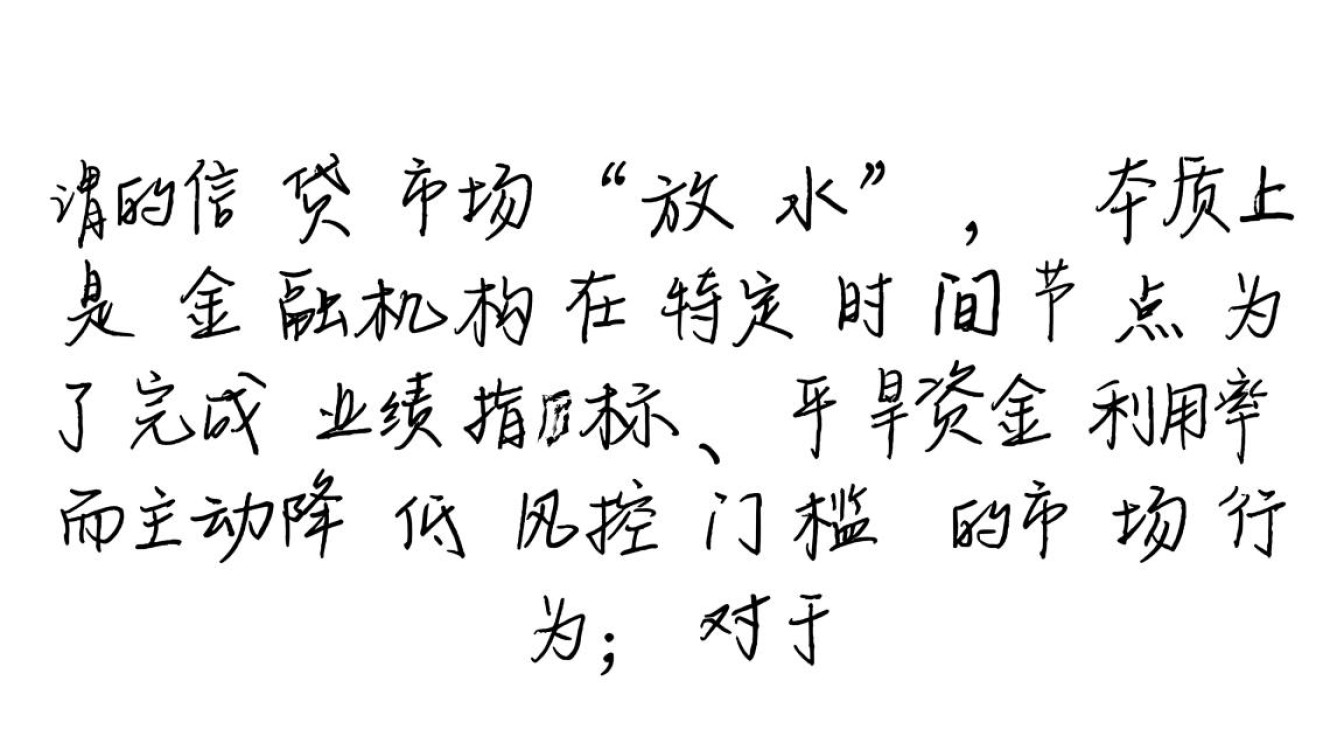 谓的信贷市场“放水”，本质上
是金融机构在特定时间节点为
了完成业绩指标、平旱资金利用率
而主动降低风控门槛的市场行
为；对于